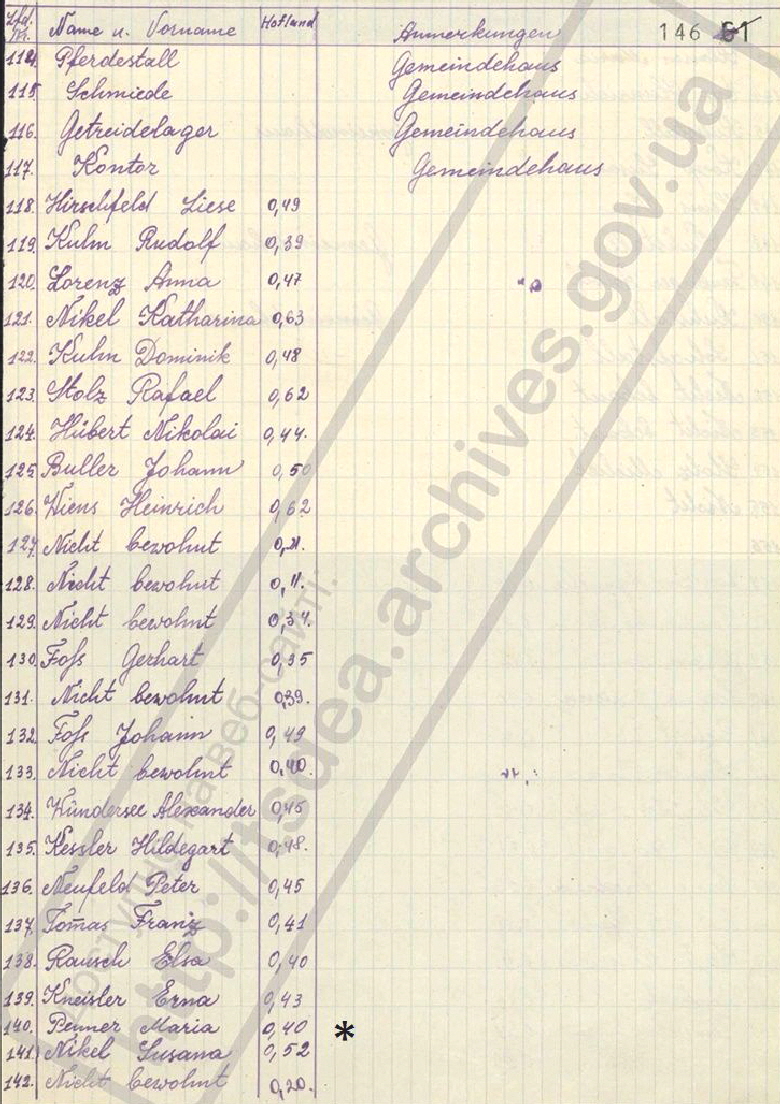 Lfd. Nr. Name u. Vorname Hofland Anmerkungen 146 61
114. Pferdestall Gemeindehaus
115. Schmiede Gemeindehaus
116. Getreidelager Gemeindehaus
117. Kontor Gemeindehaus
118. Hirschfeld Liese 0,49
119. Kuhn Rudolf 0,39
120. Lorenz Anna 0,47
121. Nikel Katharina 0,63
122. Kuhn Dominik 0,48
123. Stolz Rafael 0,62
124. Hübert Nikolai 0,44.
125. Buller Johann 0,50
126. Wiens Heinrich 0,62
127. Nicht bewohnt
128. Nicht bewohnt 0,11.
129. Nicht bewohnt 0,34.
130. Foſs Gerhart 0,35
131. Nicht bewohnt 0,39.
132. Foſs Johann 0,49
133. Nicht bewohnt 0,40.
134. Wündersee Alexander 0,45
135. Kessler Hildegart 0,48.
136. Neufeld Peter 0,45
137. Tomas Franz 0,41
138. Rausch Elsa 0,40
139. Kneisler Erna 0,43
140. Penner Maria 0,40 *
141. Nikel Susana 0,52
142. Nicht bewohnt 0,20.
Доступно на веб-сайті:
http://tsdea.archives.gov.ua